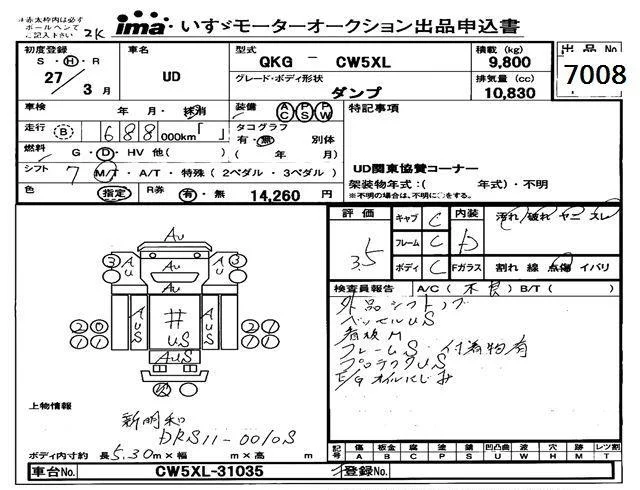 ※赤太枠内は必ず
ボールペンで
ご記入下さい
2K
ima いすゞモーターオークション出品申込書
初度登録
S・H・R
27 / 3 月
車名
UD
型式
QKG － CW5XL
グレード・ボディ形状
ダンプ
積載 (kg)
9,800
排気量 (cc)
10,830
出品 No
7008
車検 年・月・抹消
装備 AC PS PW
特記事項
走行 (B) 688 000km「 」
タコグラフ
有・無 別体
( 年 月)
燃料 G・D・HV 他( )
シフト 7 M/T・A/T・特殊 (2ペダル・3ペダル)
色 指定 R券 有・無 14,260 円
UD関東協賛コーナー
架装物年式:( 年式)・不明
※不明の場合は、不明に○をする。
評価 3.5
キャブ C
フレーム C
ボディ C
内装 D
汚れ 破れ ヤニ スレ
Fガラス 割れ 線 点傷 イバリ
検査員報告 A/C( 不良 ) B/T( )
外品シフトノブ
ベッセルUS
看板M
フレームS 付着物有
プロテクタUS
E/Gオイルにじみ
Au
Au
3 AU AU 3
2 2 AUS # US AUS 2 2
1 1 1 1
AUS
上物情報
新明和
DRS11-0010S
ボディ内寸約 長 5.30m × 幅 m × 高 m
記号 傷 A 板金 B 腐 C 塗 P 錆 S 凹凸曲 U 波 W 穴 H 飛 M レンズ割 T
車台No. CW5XL-31035
登録No.